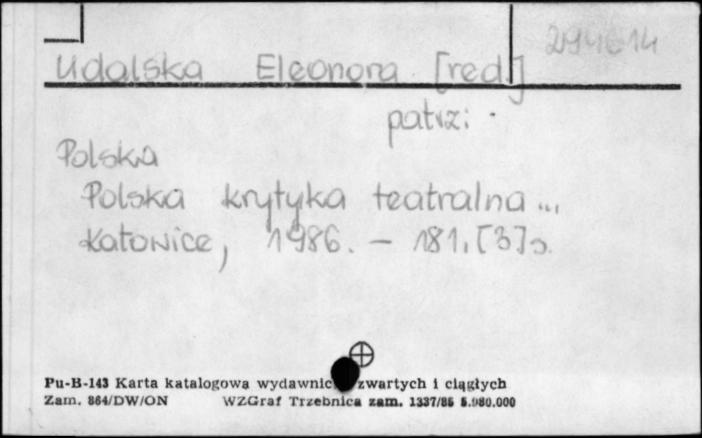 294614
Udalska Eleonora [red.]
patrz:
Polska
Polska krytyka teatralna...
Katowice, 1986. – 181, [3] s.
Pu-B-143 Karta katalogowa wydawnic zwartych i ciągłych
Zam. 864/DW/ON WZGraf Trzebnica zam. 1337/85 5.980.000